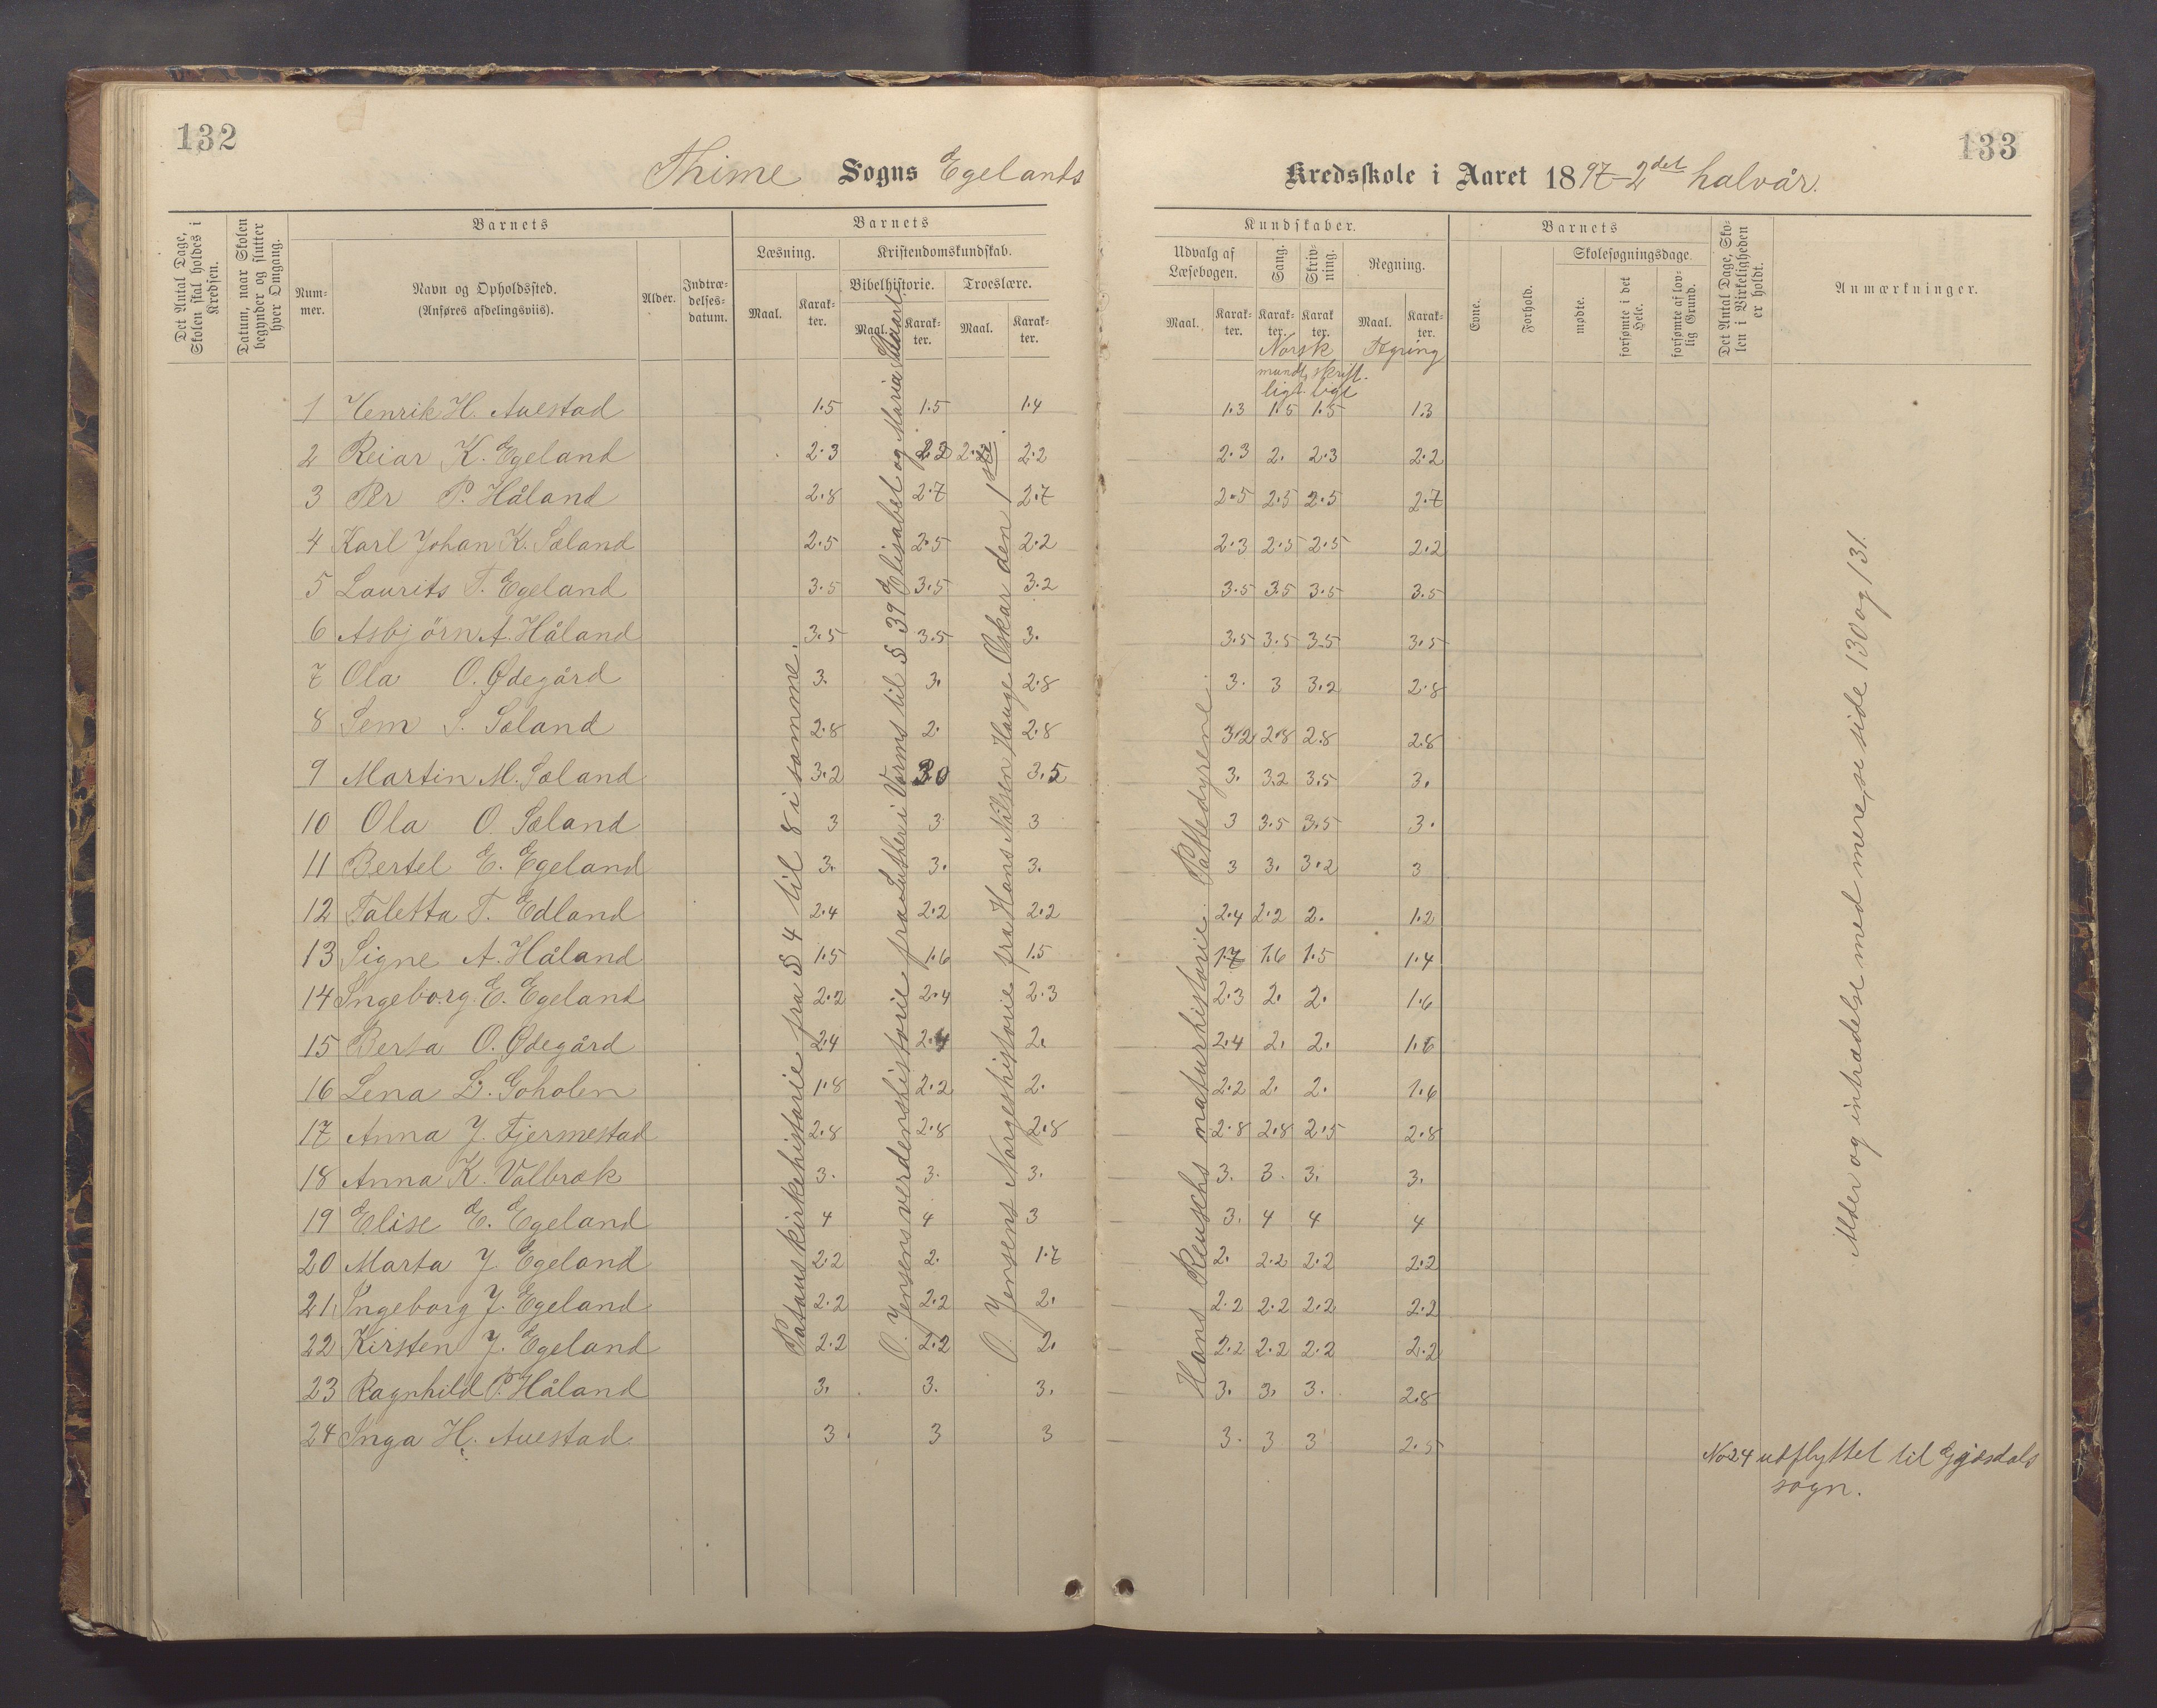 132
133
Thime Sogns Egelands Kredsskole i Aaret 1897 - 2det halvår.
Det Antal Dage, Skolen skal holdes i Kredsen.
Datum, naar Skolen begynder og slutter hver Omgang.
Barnets
Nummer.
Navn og Opholdssted.
(Anføres afdelingsviis).
Alder.
Indtrædelsesdatum.
Barnets
Læsning.
Kristendomskundskab.
Bibelhistorie.
Troeslære.
Maal. Karakter. Maal. Karakter. Maal. Karakter.
Kundskaber.
Udvalg af Læsebogen.
Sang.
Skrivning.
Regning.
Maal. Karakter. Karakter. Karakter. Maal. Karakter.
Norsk
mundtligt skriftligt
Barnets
Evne.
Forhold.
Skolesøgningsdage.
mødte.
forsømte i det Hele.
forsømte af lovlig Grund.
Det Antal Dage, Skolen i Virkeligheden er holdt.
Anmærkninger.
1 Henrik H. Auestad 1.5 1.5 1.4 1.3 1.5 1.5 1.3
2 Reiar K. Egeland 2.3 2.3 2.2 2.2 2.3 2. 2.3 2.2
3 Per P. Håland 2.8 2.7 2.7 2.5 2.5 2.5 2.7
4 Karl Johan K. Sæland 2.5 2.5 2.2 2.3 2.5 2.5 2.2
5 Laurits T. Egeland 3.5 3.5 3.2 3.5 3.5 3.5 3.5
6 Asbjörn A. Håland 3.5 3.5 3. 3.5 3.5 3.5 3.5
7 Ola O. Ødegård 3. 3. 2.8 3. 3 3.2 2.8
8 Sem S. Sæland 2.8 2. 2.8 3.2 2.8 2.8 2.8
9 Martin M. Sæland 3.2 3.0 3.5 3. 3.2 3.5 3.
10 Ola O. Sæland 3 3 3 3 3.5 3.5 3.
11 Bertel E. Egeland 3. 3. 3. 3 3. 3.2 3
12 Taletta T. Edland 2.4 2.2 2.2 2.4 2.2 2. 1.2
13 Signe A. Håland 1.5 1.6 1.5 1.7 1.6 1.5 1.4
14 Ingeborg E. Egeland 2.2 2.4 2.3 2.3 2. 2. 1.6
15 Berta O. Ødegård 2.4 2.4 2. 2.4 2. 2. 1.6
16 Lena L. Goholen 1.8 2.2 2. 2.2 2. 2. 1.6
17 Anna J. Fjermestad 2.8 2.8 2.8 2.8 2.8 2.5 2.8
18 Anna K. Valbræk 3. 3. 3. 3. 3. 3. 3.
19 Elise E. Egeland 4 4 3 3. 4 4 4
20 Marta J. Egeland 2.2 2. 1.7 2. 2.2 2.2 2.2
21 Ingeborg J. Egeland 2.2 2.2 2. 2.2 2.2 2.2 2.2
22 Kirsten J. Egeland 2.2 2.2 2. 2.2 2.2 2.2 2.2
23 Ragnhild P. Håland 3. 3. 3. 3. 3. 3. 2.8
24 Inga H. Auestad 3. 3 3 3. 3 3 2.5
kirkehistorie fra § 4 til 8 i somme.
O. Jensens verdenshistorie fra Luther i Worms til § 39 Elisabet og Maria Stuart.
O. Jensens Norgeshistorie fra Hans Nilsen Hauge Oskar den 1ste.
Hans Reuschs naturhistorie. Pattedyrene.
Alder og intrædelse med mere, se side 130 og 131.
No 24 utflyttet til Gjesdals
sogn.